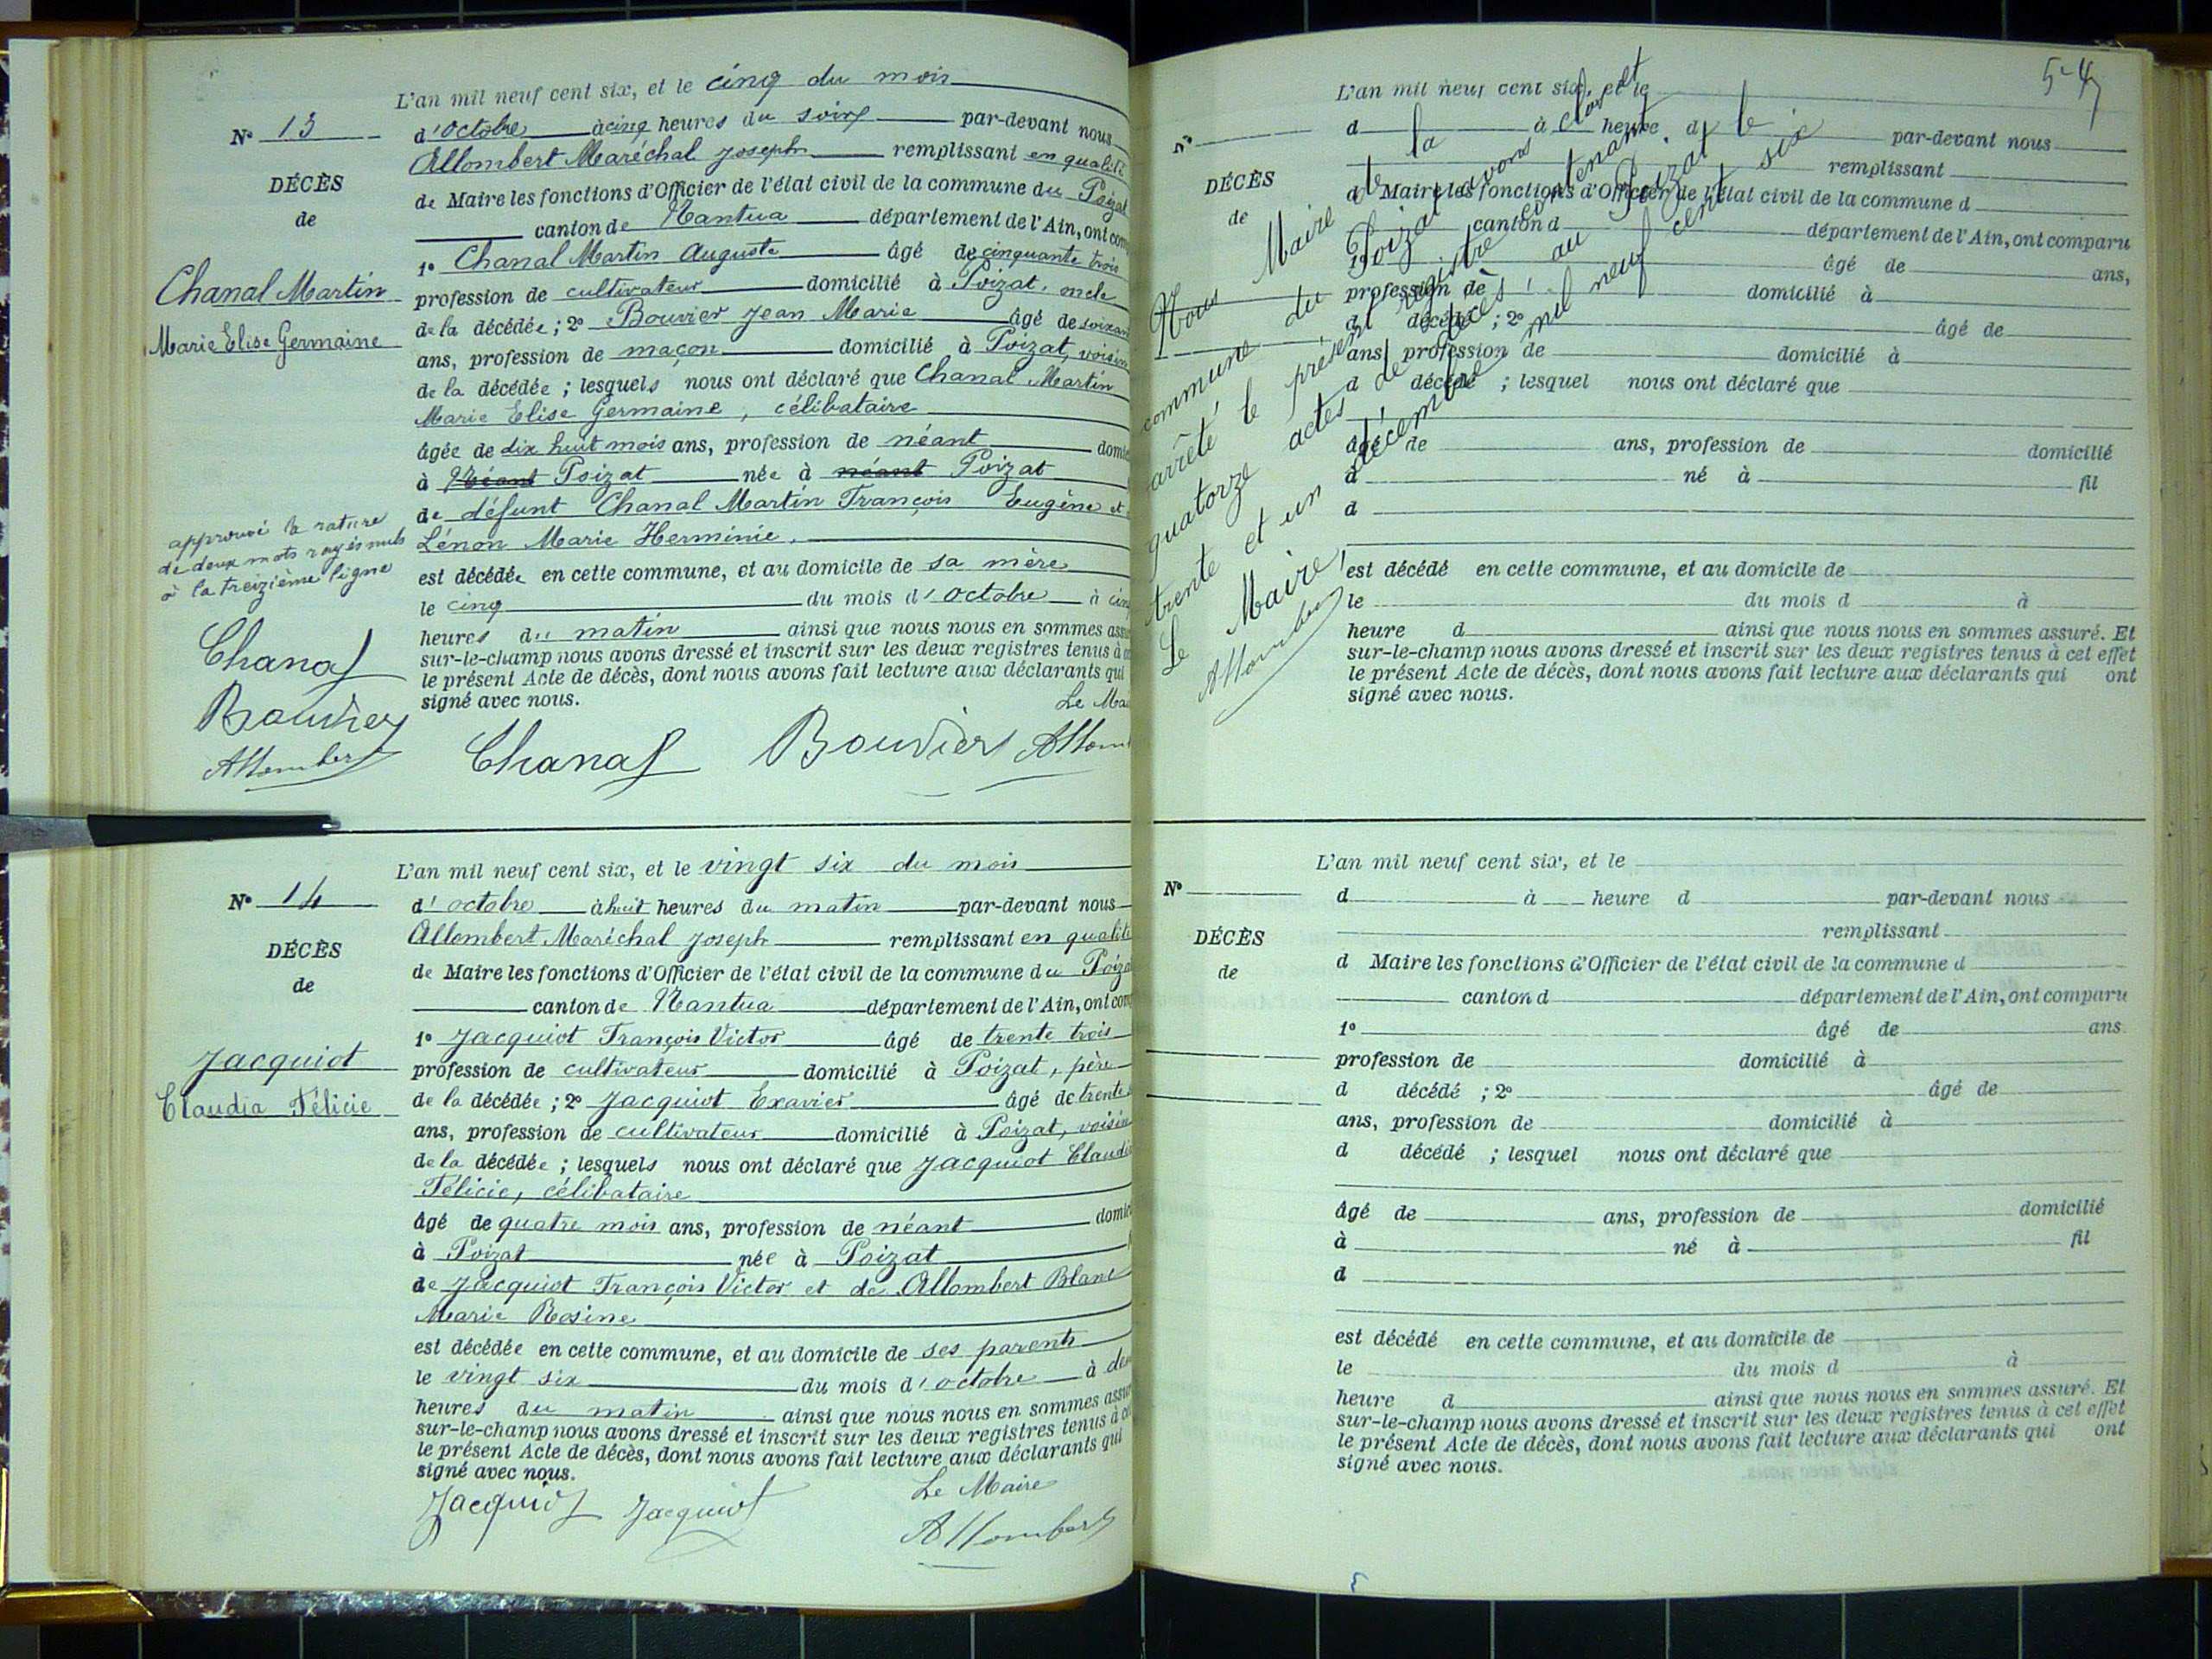 L'an mil neuf cent six, et le cinq du mois
N° 13
d'octobre à cinq heures du soir par-devant nous
Allombert Maréchal Joseph remplissant en qualité
DÉCÈS
de Maire les fonctions d'Officier de l'état civil de la commune du Poizat
de
canton de Nantua département de l'Ain, ont
1° Chanal Martin Auguste âgé de cinquante trois
Chanal Martin
profession de cultivateur domicilié à Poizat, oncle
Marie Elise Germaine
de la décédée ; 2° Bouvier Jean Marie âgé de
ans, profession de maçon domicilié à Poizat, voisin
de la décédée ; lesquels nous ont déclaré que Chanal Martin
Marie Elise Germaine, célibataire
âgée de dix huit mois ans, profession de néant
à Néant Poizat née à néant Poizat
de défunt Chanal Martin François Eugène et
Lénon Marie Herminie.
approuvé la rature
de deux mots rayés nuls
à la treizième ligne
est décédée en cette commune, et au domicile de sa mère
le cinq du mois d'octobre à
heures du matin ainsi que nous nous en sommes
sur-le-champ nous avons dressé et inscrit sur les deux registres tenus à
le présent Acte de décès, dont nous avons fait lecture aux déclarants qui
signé avec nous.
Le
Chanal
Bouvier
Allombert
Chanal Bouvier
L'an mil neuf cent six, et le vingt six du mois
N° 14
d'octobre à huit heures du matin par-devant nous
Allombert Maréchal Joseph remplissant en qualité
DÉCÈS
de Maire les fonctions d'Officier de l'état civil de la commune du
de
canton de Nantua département de l'Ain, ont
1° Jacquiot François Victor âgé de trente trois
Jacquiot
profession de cultivateur domicilié à Poizat, père
Claudia Félicie
de la décédée ; 2° Jacquiot Exavier âgé de trente
ans, profession de cultivateur domicilié à Poizat, voisin
de la décédée ; lesquels nous ont déclaré que Jacquiot Claudia
Félicie, célibataire
âgé de quatre mois ans, profession de néant
à Poizat née à Poizat
de Jacquiot François Victor et de Allombert Blanc
Marie Rosine
est décédée en cette commune, et au domicile de ses parents
le vingt six du mois d'octobre à
heures du matin ainsi que nous nous en sommes
sur-le-champ nous avons dressé et inscrit sur les deux registres tenus à
le présent Acte de décès, dont nous avons fait lecture aux déclarants qui
signé avec nous.
Le Maire
Jacquiot Jacquiot Allombert
54
L'an mil neuf cent six, et le
N°
d à heure d par-devant nous
remplissant
DÉCÈS
d Maire les fonctions d'Officier de l'état civil de la commune d
de
canton d département de l'Ain, ont comparu
1° âgé de ans,
profession de domicilié à
d décédé ; 2° âgé de
ans, profession de domicilié à
d décédé ; lesquel nous ont déclaré que
âgé de ans, profession de domicilié
à né à fil
d
est décédé en cette commune, et au domicile de
le du mois d à
heure d ainsi que nous nous en sommes assuré. Et
sur-le-champ nous avons dressé et inscrit sur les deux registres tenus à cet effet
le présent Acte de décès, dont nous avons fait lecture aux déclarants qui ont
signé avec nous.
Nous Maire de la
commune du Poizat avons clos et
arrêté le présent registre contenant
quatorze actes de décès, au Poizat le
trente et un décembre mil neuf cent six
Le Maire,
Allombert
L'an mil neuf cent six, et le
N°
d à heure d par-devant nous
remplissant
DÉCÈS
d Maire les fonctions d'Officier de l'état civil de la commune d
de
canton d département de l'Ain, ont comparu
1° âgé de ans
profession de domicilié à
d décédé ; 2° âgé de
ans, profession de domicilié à
d décédé ; lesquel nous ont déclaré que
âgé de ans, profession de domicilié
à né à fil
d
est décédé en cette commune, et au domicile de
le du mois d à
heure d ainsi que nous nous en sommes assuré. Et
sur-le-champ nous avons dressé et inscrit sur les deux registres tenus à cet effet
le présent Acte de décès, dont nous avons fait lecture aux déclarants qui ont
signé avec nous.